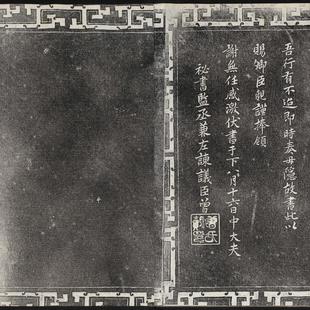 吾行有不迨即時奏毋隱故書此以
賜卿臣親謹捧領
謝無任感激伏書于下八月十六日中大夫
祕書監丞兼左諫議臣曾